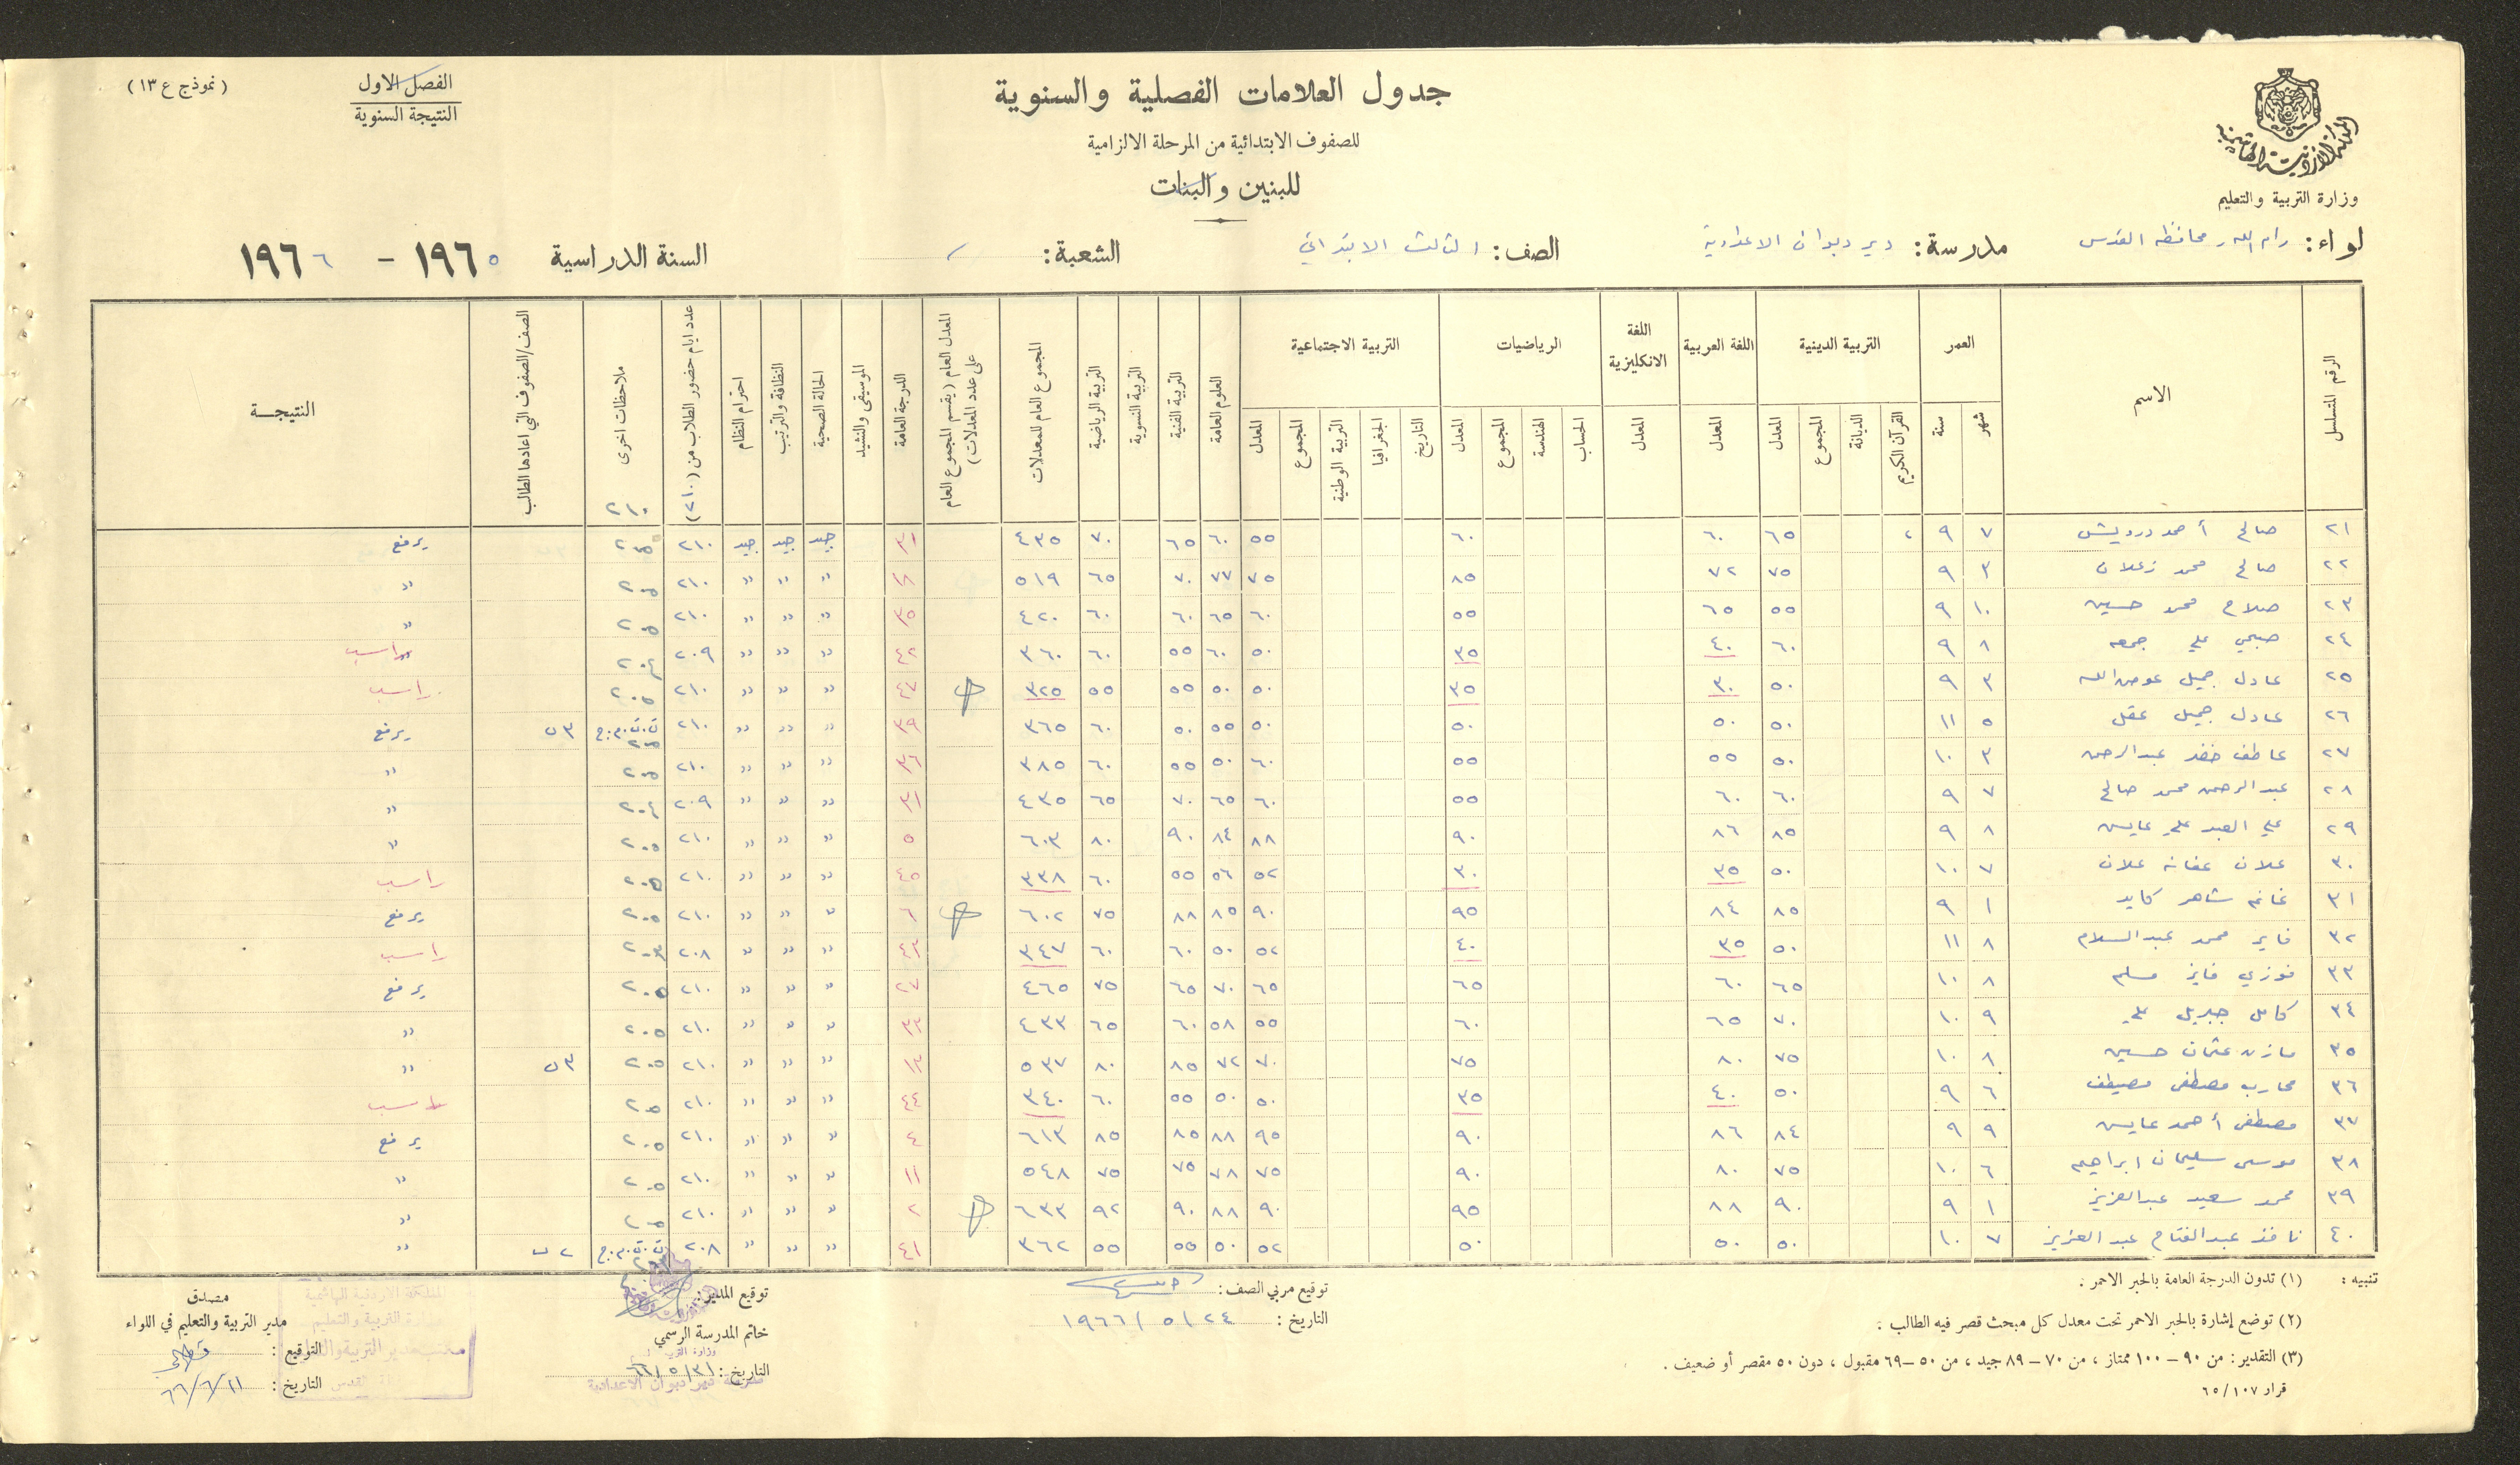 المملكة الأردنية الهاشمية
وزارة التربية والتعليم
جدول العلامات الفصلية والسنوية
للصفوف الابتدائية من المرحلة الالزامية
للبنين والبنات
الفصل الاول
النتيجة السنوية
( نموذج ع ١٣ )
لواء : رام الله ومحافظه القدس مدرسة : دير ديوان الاعدادية الصف : الثالث الابتدائي الشعبة : السنة الدراسية ١٩٦٥ - ١٩٦٦
الرقم المتسلسل الاسم العمر التربية الدينية اللغة العربية اللغة الانكليزية الرياضيات التربية الاجتماعية العلوم العامة التربية الفنية التربية النسوية التربية الرياضية المجموع العام للمعدلات المعدل العام ( يقسم المجموع العام على عدد المعدلات ) الدرجة العامة الموسيقى والنشيد الحالة الصحية النظافة والترتيب احترام النظام عدد ايام حضور الطلاب من (٢١٠) ملاحظات اخرى ٢١٠ الصف/الصفوف التي اعادها الطالب النتيجـة
شهر سنة القرآن الكريم الديانة المجموع المعدل المعدل المعدل الحساب الهندسة المجموع المعدل التاريخ الجغرافيا التربية الوطنية المجموع المعدل
٢١ صالح أحمد درويش ٧ ٩ ٦٥ ٦٠ ٦٠ ٥٥ ٦٠ ٦٥ ٧٠ ٤٣٥ ٣١ جيد جيد جيد ٢١٠ ٢٠٥ يرفع
٢٢ صالح محمد زعلان ٣ ٩ ٧٥ ٧٢ ٨٥ ٧٥ ٧٧ ٧٠ ٦٥ ٥١٩ ١٦ " " " ٢١٠ ٢٠٥ "
٢٣ صلاح محمد حسين ١٠ ٩ ٥٥ ٦٥ ٥٥ ٦٠ ٦٥ ٦٠ ٦٠ ٤٢٠ ٣٥ " " " ٢١٠ ٢٠٥ "
٢٤ صبحي علي جمعه ٨ ٩ ٦٠ ٤٠ ٣٥ ٥٠ ٦٠ ٥٥ ٦٠ ٣٦٠ ٤٢ " " " ٢٠٩ ٢٠٤ راسب
٢٥ عادل جميل عوض الله ٣ ٩ ٥٠ ٣٠ ٣٥ ٥٠ ٥٠ ٥٥ ٥٥ ٣٢٥ ٤٧ " " " ٢١٠ ٢٠٥ راسب
٢٦ عادل جميل عقل ٥ ١١ ٥٠ ٥٠ ٥٠ ٥٠ ٥٥ ٥٠ ٦٠ ٣٦٥ ٣٩ " " " ٢١٠ ت.ت.م.ج ٢٠٥ ٣ ب يرفع
٢٧ عاطف خضر عبدالرحمن ٣ ١٠ ٥٠ ٥٥ ٥٥ ٦٠ ٥٠ ٥٥ ٦٠ ٣٨٥ ٣٦ " " " ٢١٠ ٢٠٥ "
٢٨ عبدالرحمن محمد صالح ٧ ٩ ٦٠ ٦٠ ٥٥ ٦٠ ٦٥ ٧٠ ٦٥ ٤٣٥ ٣١ " " " ٢٠٩ ٢٠٤ "
٢٩ علي العبد علي عايس ٨ ٩ ٨٥ ٨٦ ٩٠ ٨٨ ٨٤ ٩٠ ٨٠ ٦٠٣ ٥ " " " ٢١٠ ٢٠٥ "
٣٠ علان عفانه علان ٧ ١٠ ٥٠ ٣٥ ٣٠ ٥٢ ٥٦ ٥٥ ٦٠ ٣٣٨ ٤٥ " " " ٢١٠ ٢٠٥ راسب
٣١ غانم شاهر كايد ١ ٩ ٨٥ ٨٤ ٩٥ ٩٠ ٨٥ ٨٨ ٧٥ ٦٠٢ ٦ " " " ٢١٠ ٢٠٥ يرفع
٣٢ فايز محمد عبدالسلام ٨ ١١ ٥٠ ٣٥ ٤٠ ٥٢ ٥٠ ٦٠ ٦٠ ٣٤٧ ٤٣ " " " ٢٠٨ ٢٠٣ راسب
٣٣ فوزي فايز مسلم ٨ ١٠ ٦٥ ٦٠ ٦٥ ٦٥ ٧٠ ٦٥ ٧٥ ٤٦٥ ٢٧ " " " ٢١٠ ٢٠٥ يرفع
٣٤ كامل جبريل علي ٩ ١٠ ٧٠ ٦٥ ٦٠ ٥٥ ٥٨ ٦٠ ٦٥ ٤٣٣ ٣٣ " " " ٢١٠ ٢٠٥ "
٣٥ مازن عثمان حسين ٨ ١٠ ٧٥ ٨٠ ٧٥ ٧٠ ٧٢ ٨٥ ٨٠ ٥٣٧ ١٣ " " " ٢١٠ ٢٠٥ ٣ ب "
٣٦ محارب مصطفى مصيطف ٦ ٩ ٥٠ ٤٠ ٣٥ ٥٠ ٥٠ ٥٥ ٦٠ ٣٤٠ ٤٤ " " " ٢١٠ ٢٠٥ راسب
٣٧ مصطفى أحمد عايس ٩ ٩ ٨٤ ٨٦ ٩٠ ٩٥ ٨٨ ٨٥ ٨٥ ٦١٣ ٤ " " " ٢١٠ ٢٠٥ يرفع
٣٨ موسى سليمان ابراهيم ٦ ١٠ ٧٥ ٨٠ ٩٠ ٧٥ ٧٨ ٧٥ ٧٥ ٥٤٨ ١١ " " " ٢١٠ ٢٠٥ "
٣٩ محمد سعيد عبدالعزيز ١ ٩ ٩٠ ٨٨ ٩٥ ٩٠ ٨٨ ٩٠ ٩٢ ٦٣٣ ٢ " " " ٢١٠ ٢٠٥ "
٤٠ نافذ عبدالفتاح عبدالعزيز ٧ ١٠ ٥٠ ٥٠ ٥٠ ٥٢ ٥٠ ٥٥ ٥٥ ٣٦٢ ٤١ " " " ٢٠٨ ت.ت.م.ج ٢ ب "
تنبيه : (١) تدون الدرجة العامة بالحبر الاحمر .
(٢) توضع إشارة بالحبر الاحمر تحت معدل كل مبحث قصر فيه الطالب .
(٣) التقدير : من ٩٠ – ١٠٠ ممتاز ، من ٧٠ – ٨٩ جيد ، من ٥٠ – ٦٩ مقبول ، دون ٥٠ مقصر أو ضعيف .
قرار ٦٥/١٠٧
توقيع مربي الصف :
التاريخ : ٢٤ / ٥ / ١٩٦٦
توقيع المدير :
خاتم المدرسة الرسمي
التاريخ : ٣١ / ٥ / ٦٦
مدرسة دير ديوان الاعدادية
مصدق
مدير التربية والتعليم في اللواء
التوقيع :
التاريخ : ١١ / ٦ / ٦٦
المملكة الاردنية الهاشمية
وزارة التربية والتعليم